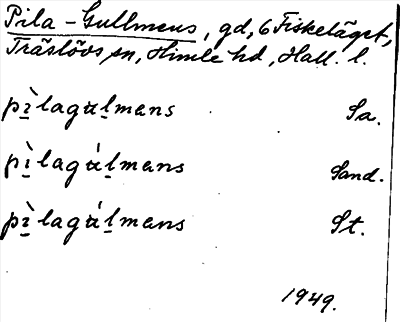 Pila-Gullmens, gd, 6 Fiskeläget,
Träslövs sn, Himle hd, Hall. l.
pì̲lagu̇l̲mans Sa.
pì̲lagu̇́l̲mans Sand.
pì̲lagu̇́l̲mans St.
1949.